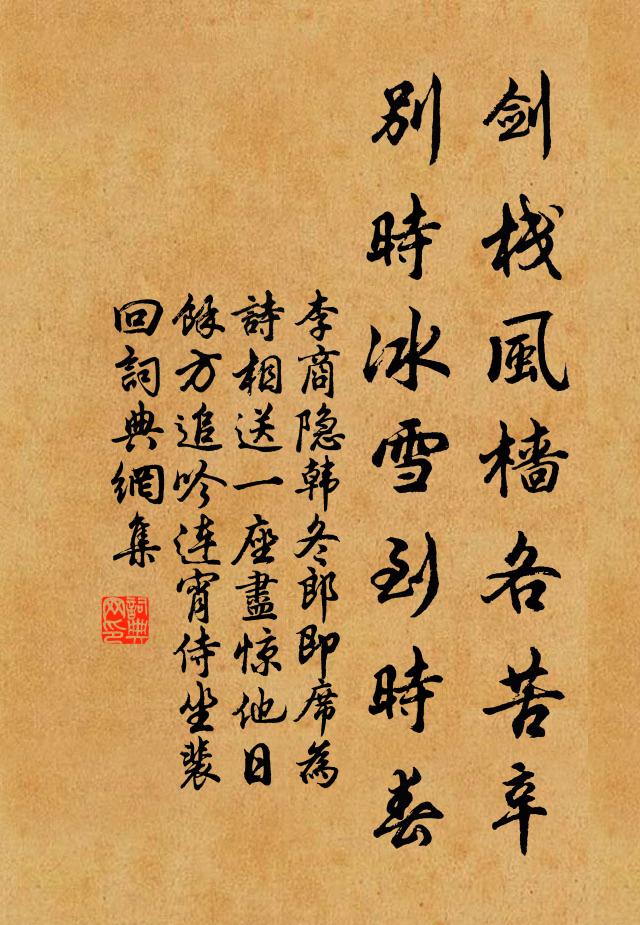 剑栈風樯各苦辛
别時冰雪到時春
李商隐韩冬郎即席為
詩相送一座盡惊他日
餘方追吟连宵侍坐裴
回詞典網集
詞典网印